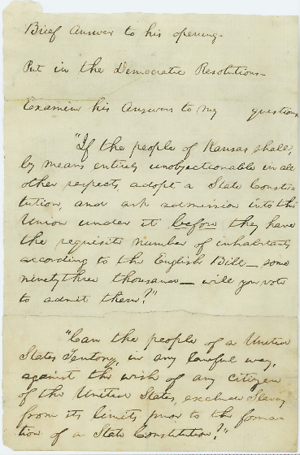 Brief Answer to his opening.
Put in the Democratic Resolutions.
Examine his Answers to my questions
"If the people of Kansas shall,
by means entirely unobjectionable in all
other respects, adopt a State Consti-
tution, and ask admission into the
Union under it before they have
the requisite number of inhabitants
according to the English Bill — some
ninety three thousand — will you vote
to admit them?"
"Can the people of a United
States Territory, in any lawful way,
against the wish of any citizen
of the United States, exclude Slavery
from its limits prior to the forma-
tion of a State Constitution?"